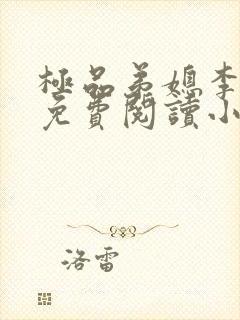 極品弟媳李
免費閱讀小
洛雷